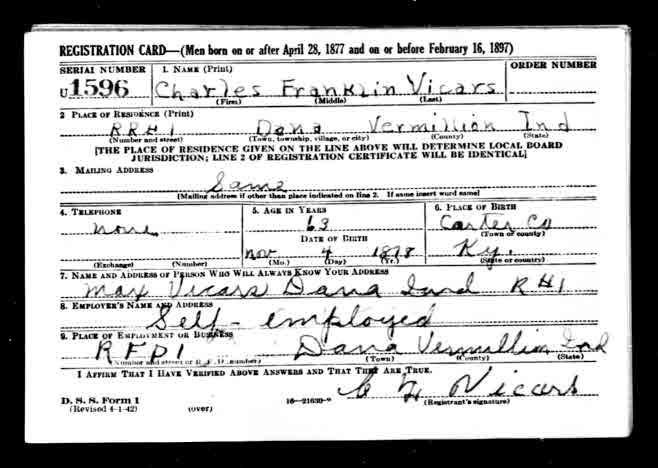 REGISTRATION CARD—(Men born on or after April 28, 1877 and on or before February 16, 1897)
SERIAL NUMBER 1. NAME (Print) ORDER NUMBER
U1596 Charles Franklin Vicars
(First) (Middle) (Last)
2 PLACE OF RESIDENCE (Print)
RR#1 Dana Vermillion Ind
(Number and street) (Town, township, village, or city) (County) (State)
[THE PLACE OF RESIDENCE GIVEN ON THE LINE ABOVE WILL DETERMINE LOCAL BOARD
JURISDICTION; LINE 2 OF REGISTRATION CERTIFICATE WILL BE IDENTICAL]
3. MAILING ADDRESS
Same
[Mailing address if other than place indicated on line 2. If same insert word same]
4. TELEPHONE 5. AGE IN YEARS 6. PLACE OF BIRTH
none 63 Carter Co
DATE OF BIRTH (Town or county)
Nov 4 1878 Ky.
(Exchange) (Number) (Mo.) (Day) (Yr.) (State or country)
7. NAME AND ADDRESS OF PERSON WHO WILL ALWAYS KNOW YOUR ADDRESS
Max Vicars Dana Ind R#1
8. EMPLOYER'S NAME AND ADDRESS
Self-employed
9. PLACE OF EMPLOYMENT OR BUSINESS
RFD1 Dana Vermillion Ind
(Number and street or R. F. D. number) (Town) (County) (State)
I AFFIRM THAT I HAVE VERIFIED ABOVE ANSWERS AND THAT THEY ARE TRUE.
C F Vicars
D. S. S. Form 1 16—21630-2 (Registrant's signature)
(Revised 4-1-42) (over)